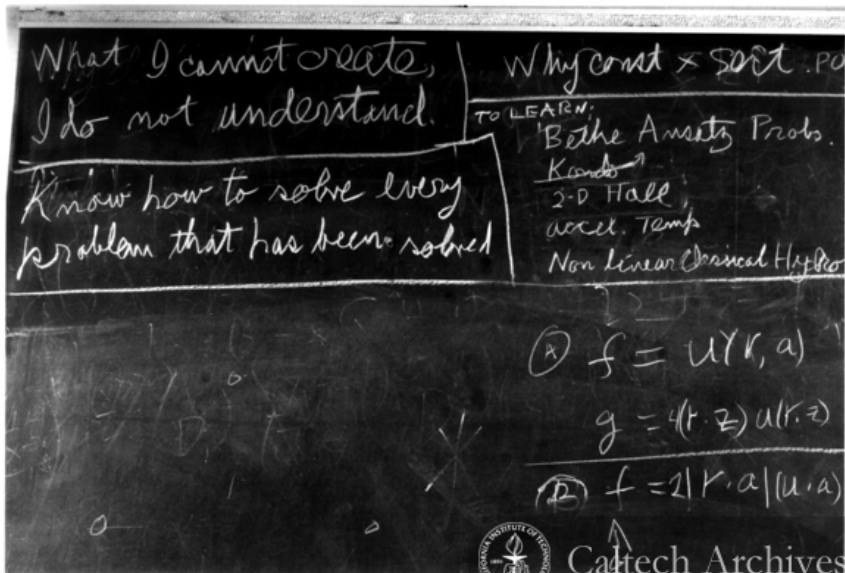 What I cannot create,
I do not understand.
Know how to solve every
problem that has been solved
Why const × sort . PO
TO LEARN:
Bethe Ansatz Probs.
Kondo
2-D Hall
accel. Temp
Non linear Classical Hydro
Ⓐ f = u(r, a)
g = 4(r·z) u(r, z)
Ⓑ f = 2|r·a|(u·a)
CALIFORNIA INSTITUTE OF TECHNOLOGY
1891
Caltech Archives